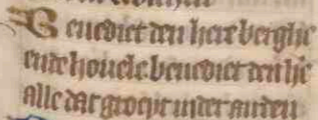 Benedict den here berghe
ende hovele benedict den he
alle dat groeyt in der auden